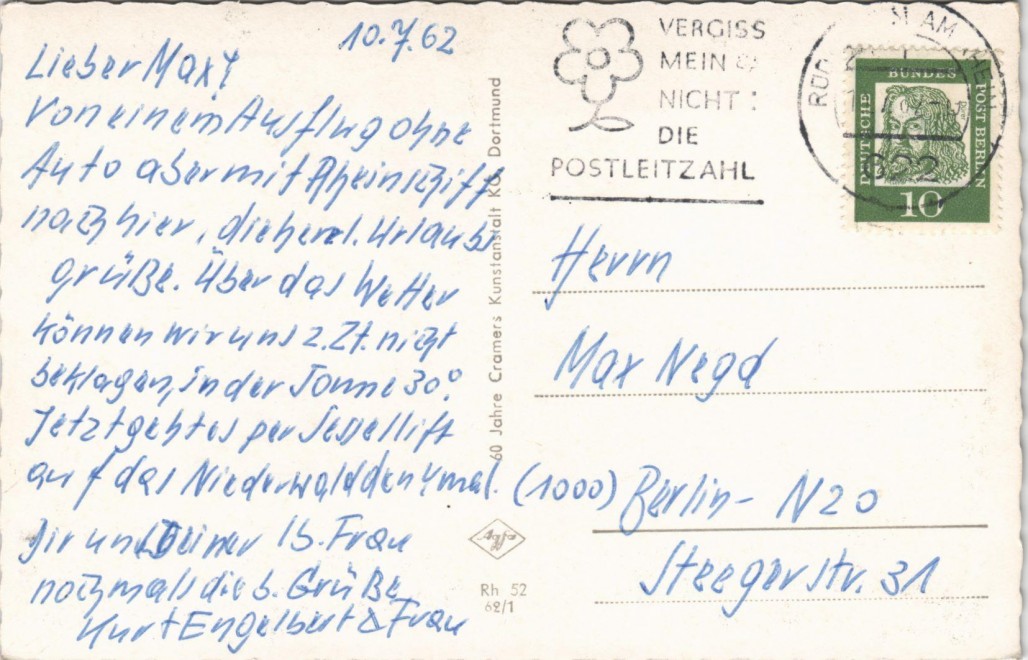 10.7.62
Lieber Max!
Von einem Ausflug ohne
Auto aber mit Rheinschiff
nach hier, die herzl. Urlaubs
grüße. Über das Wetter
können wir uns z. Zt. nicht
beklagen, in der Sonne 30°.
Jetzt geht es per Sessellift
auf das Niederwalddenkmal.
Dir und Deiner lb. Frau
nochmals die b. Grüße
Kurt Engelbert & Frau
60 Jahre Cramers Kunstanstalt KG Dortmund
Rh 52
62/1
VERGISS
MEIN
NICHT:
DIE
POSTLEITZAHL
AM
622
DEUTSCHE BUNDESPOST BERLIN
10
Herrn
Max Negd
(1000) Berlin- N20
Steegerstr. 31